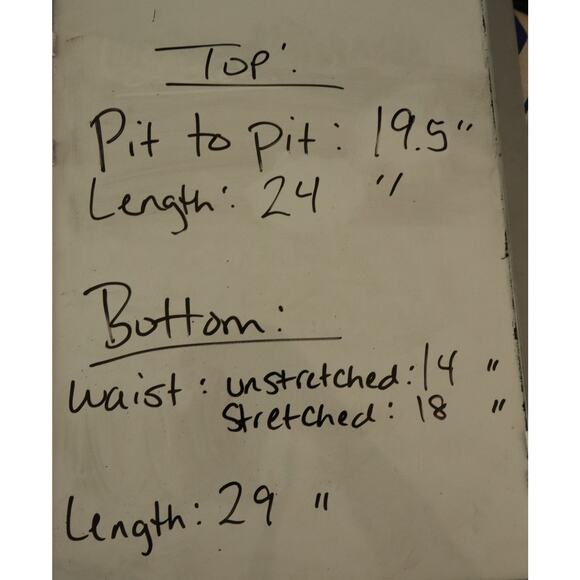 Top:
Pit to pit: 19.5"
Length: 24 "
Bottom:
waist: unstretched: 14 "
stretched: 18 "
Length: 29 "